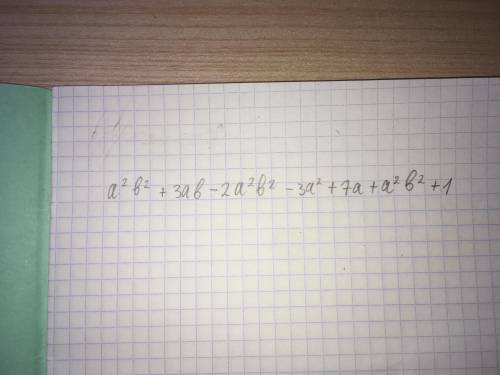 a²b² + 3ab - 2a²b² - 3a² + 7a + a²b² + 1